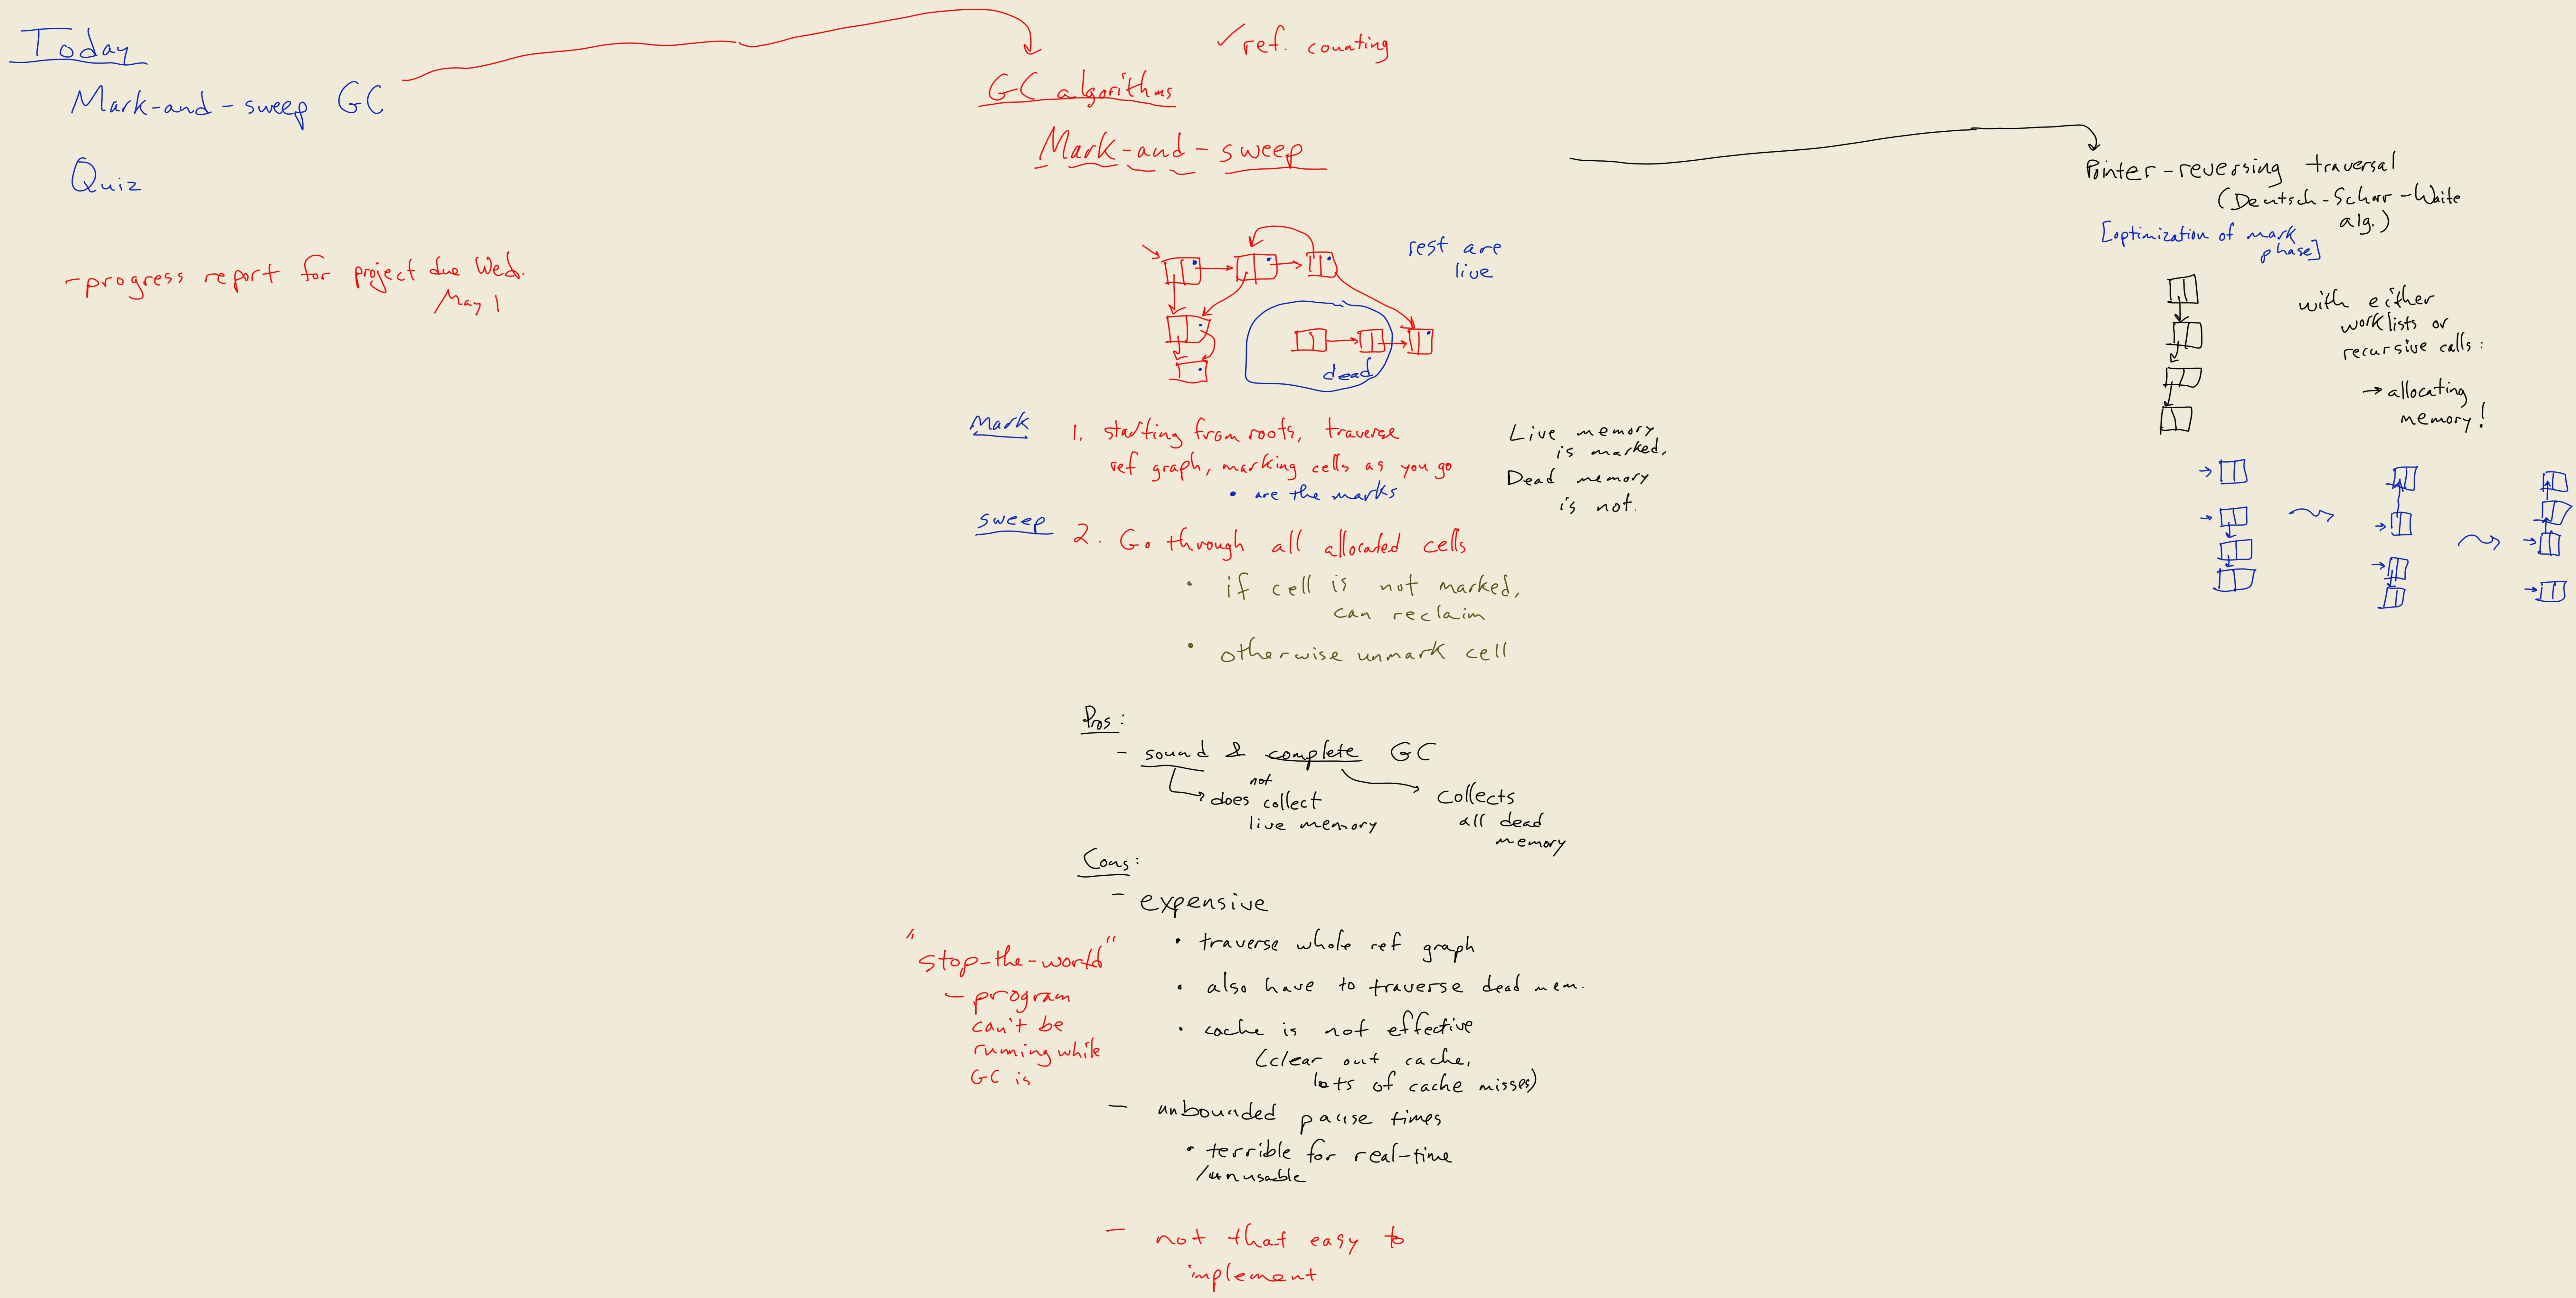 Today
Mark-and-sweep GC
Quiz
-progress report for project due Wed.
May 1
✓ ref. counting
GC algorithms
Mark-and-sweep
rest are
live
dead
Mark
1. starting from roots, traverse
ref graph, marking cells as you go
• are the marks
Live memory
is marked,
Dead memory
is not.
sweep
2. Go through all allocated cells
• if cell is not marked,
can reclaim
• otherwise unmark cell
Pros:
- sound & complete GC
not
does collect
live memory
collects
all dead
memory
Cons:
- expensive
• traverse whole ref graph
• also have to traverse dead mem.
• cache is not effective
(clear out cache,
lots of cache misses)
"stop-the-world"
- program
can't be
running while
GC is
- unbounded pause times
• terrible for real-time
/unusable
- not that easy to
implement
Pointer-reversing traversal
(Deutsch-Schorr-Waite
alg.)
[optimization of mark
phase]
with either
worklists or
recursive calls:
→ allocating
memory!